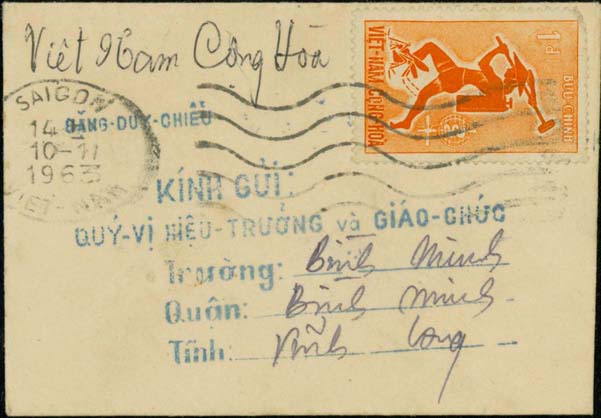 Việt Nam Cộng Hòa
1đ
BƯU-CHÍNH
VIỆT-NAM CỘNG-HÒA
SAIGON
14
10-1
1963
VIET-NAM
ĐẶNG-DUY-CHIỂU
KÍNH GỬI:
QUÝ-VỊ HIỆU-TRƯỞNG và GIÁO-CHỨC
Trường: Bình Minh
Quận: Bình Minh
Tỉnh: Vĩnh Long